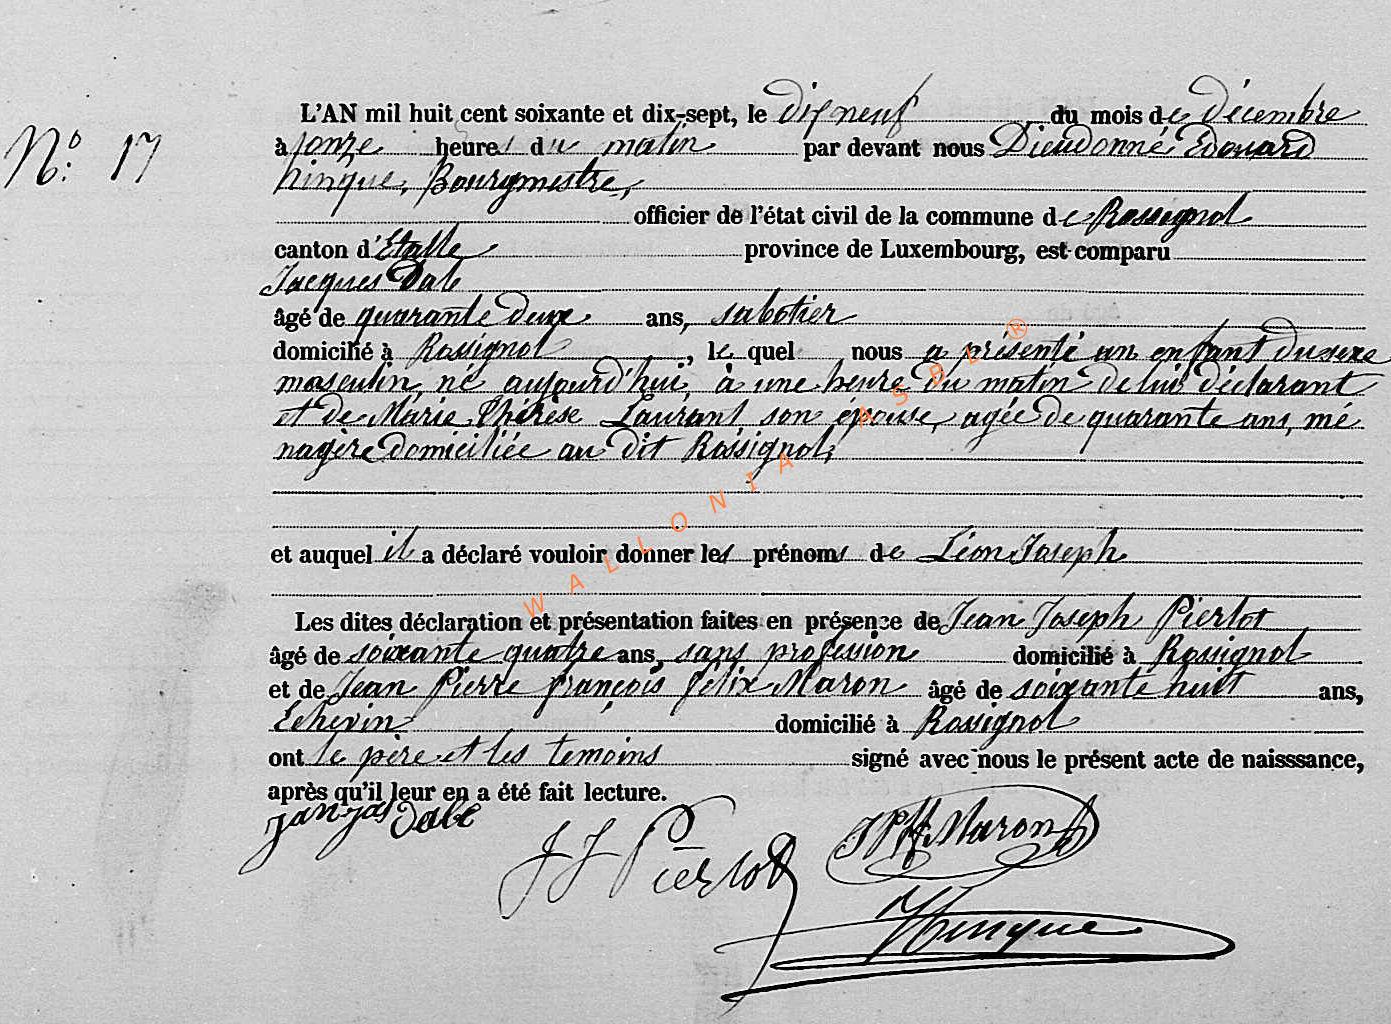 N.º 17
L'AN mil huit cent soixante et dix-sept, le dix neuf du mois de décembre
à onze heures du matin par devant nous Dieudonné Edouard
hinque, Bourgmestre,
officier de l'état civil de la commune de Rossignol
canton d'Etalle province de Luxembourg, est comparu
Jacques Dabe
âgé de quarante deux ans, sabotier
domicilié à Rossignol, le quel nous a présenté un enfant du sexe
masculin, né aujourd'hui, à une heure du matin de lui déclarant
et de Marie Thérèse Laurant son épouse, agée de quarante ans, mé
nagère domiciliée au dit Rossignol,
et auquel il a déclaré vouloir donner les prénoms de Léon Joseph
Les dites déclaration et présentation faites en présence de Jean Joseph Pierlot
âgé de soixante quatre ans, sans profession domicilié à Rossignol
et de Jean Pierre françois félix Maron âgé de soixante huit ans,
Echevin domicilié à Rossignol
ont le père et les temoins signé avec nous le présent acte de naisssance,
après qu'il leur en a été fait lecture.
Dabe
J J Pierlot
Maron
Hinque
WALLONIA ASBL ®